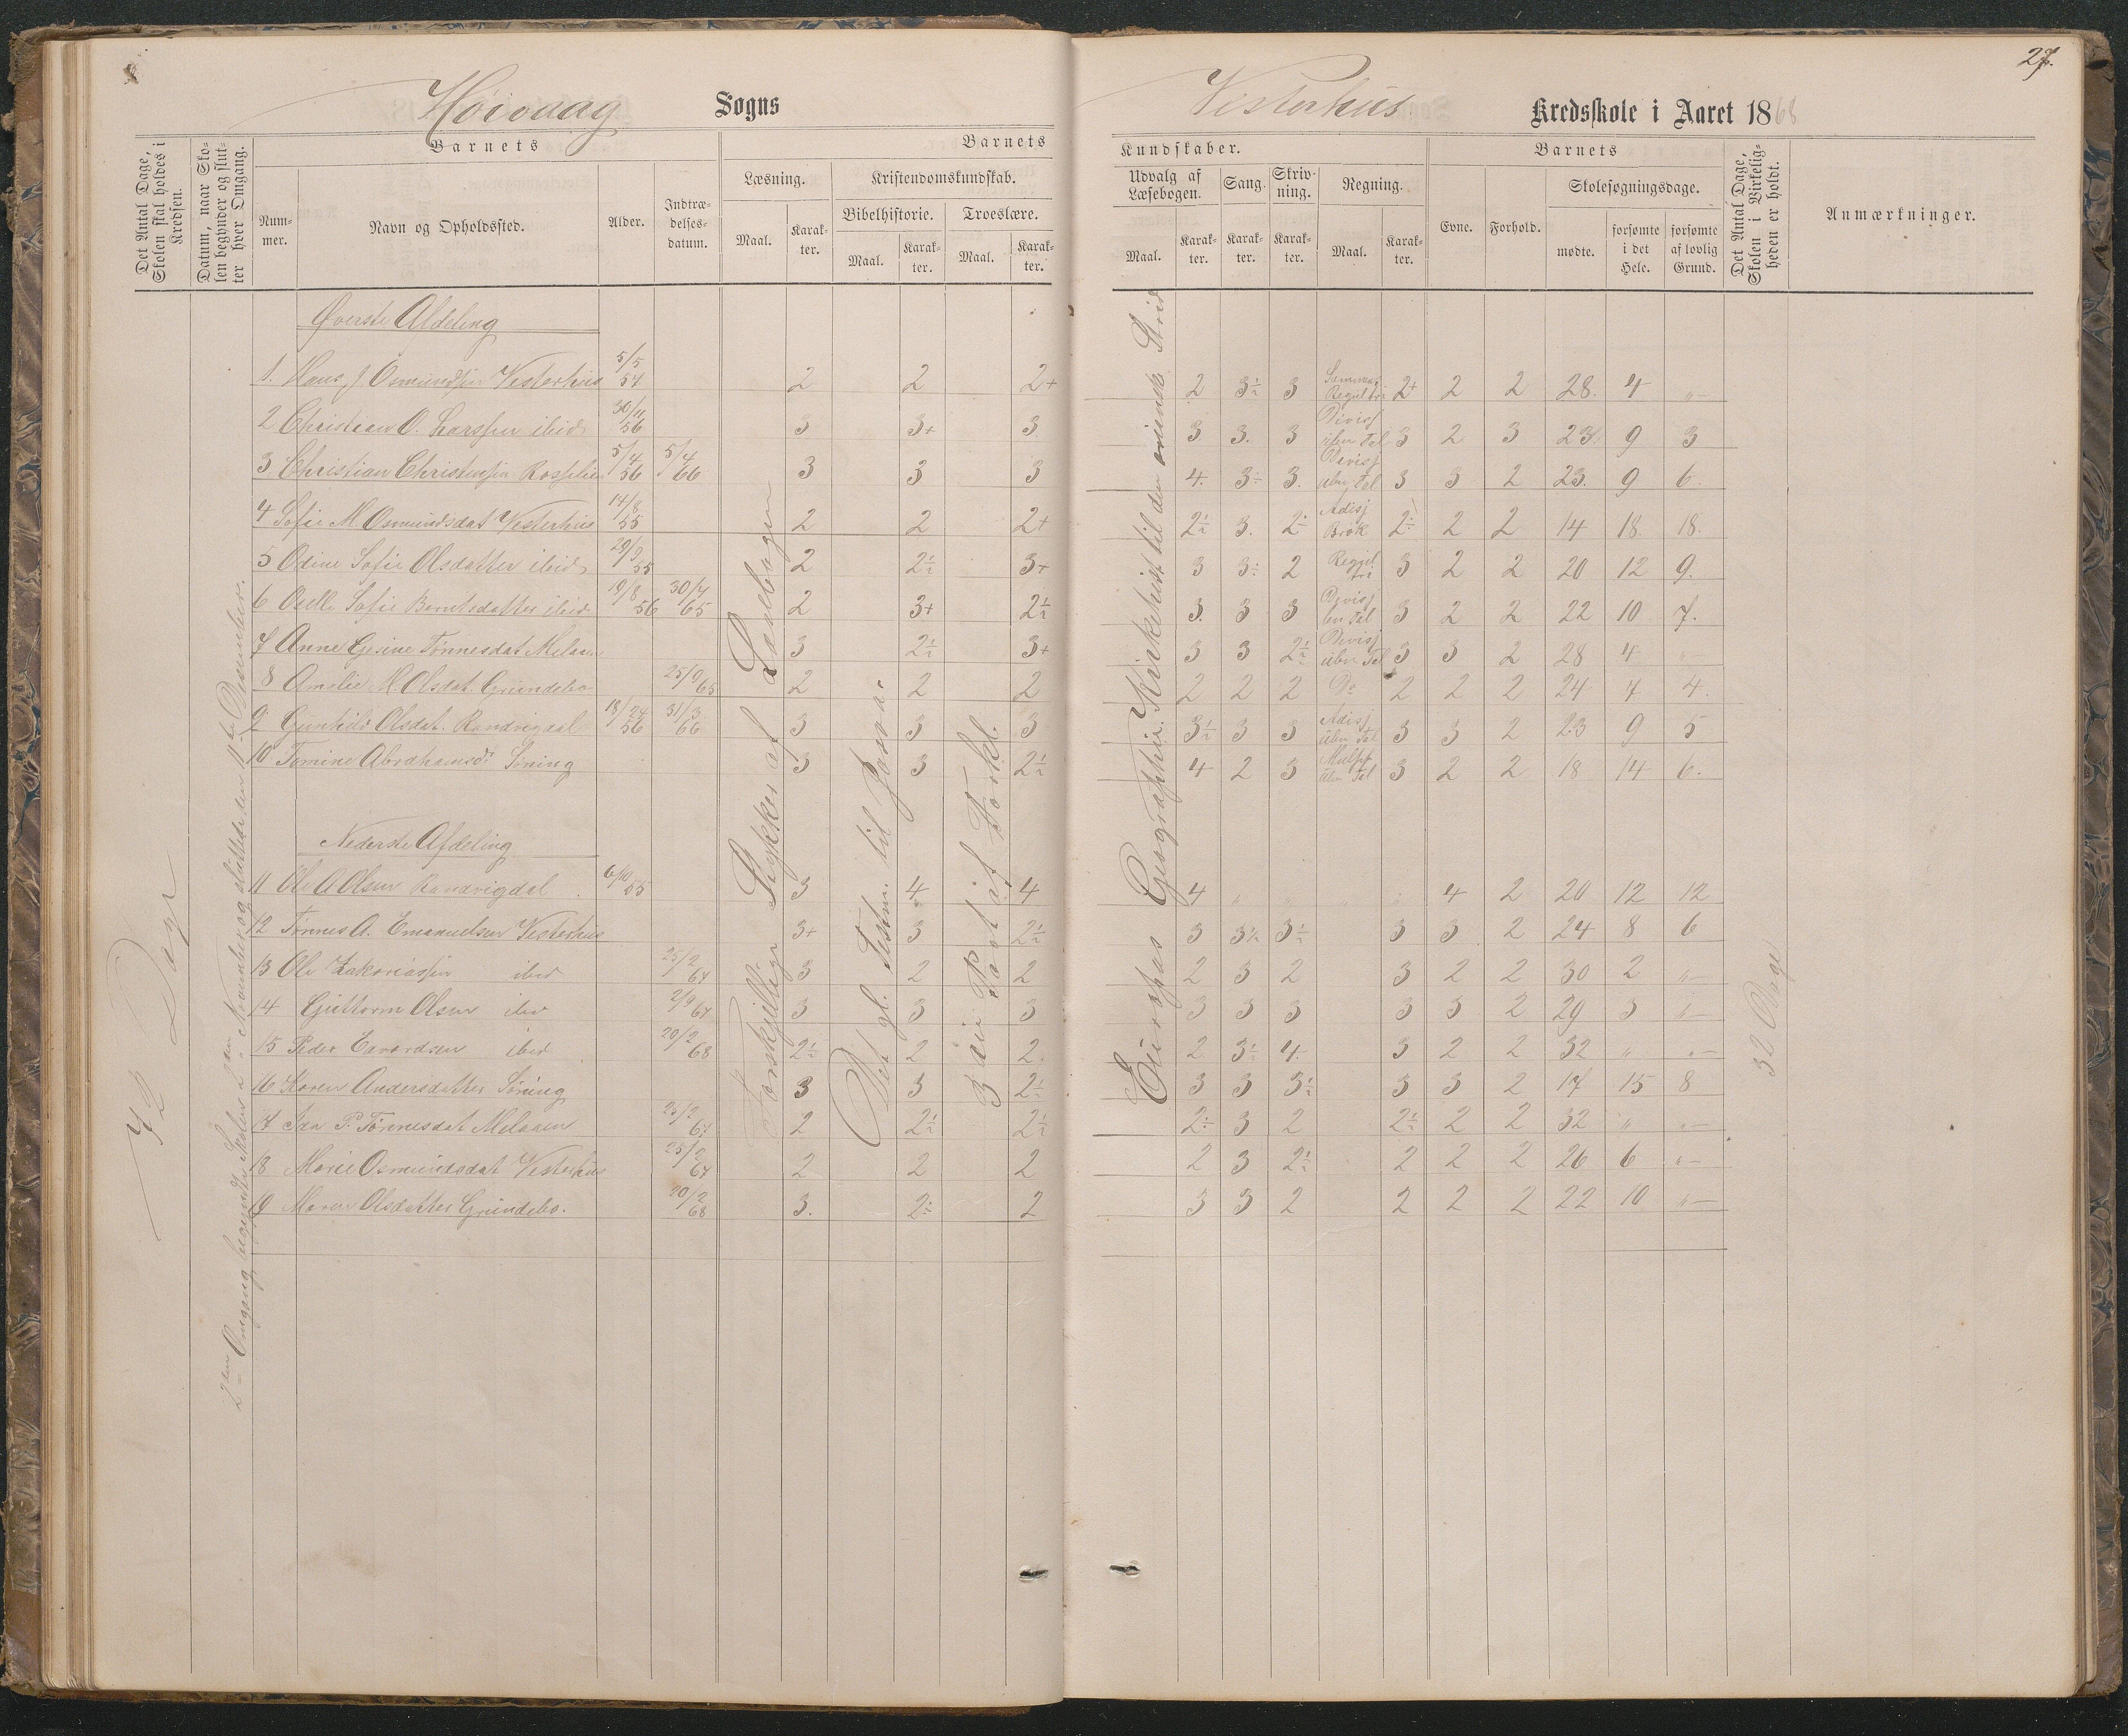 27.
Høivaag Sogns
Vesterhus Kredsskole i Aaret 1868
Det Antal Dage, Skolen skal holdes i Kredsen.
Datum, naar Skolen begynder og slutter hver Omgang.
Barnets
Nummer.
Navn og Opholdssted.
Alder.
Indtrædelsesdatum.
Barnets
Læsning.
Maal.
Karakter.
Kristendomskundskab.
Bibelhistorie.
Maal.
Karakter.
Troeslære.
Maal.
Karakter.
Kundskaber.
Udvalg af Læsebogen.
Maal.
Karakter.
Sang.
Karakter.
Skrivning.
Karakter.
Regning.
Maal.
Karakter.
Barnets
Evne.
Forhold.
Skolesøgningsdage.
mødte.
forsømte i det Hele.
forsømte af lovlig Grund.
Det Antal Dage, Skolen i Virkeligheden er holdt.
Anmærkninger.
72 Dage
2den Omgang begyndte Skolen 2den November og sluttede den 11te Desember.
Forskjellige Stykker af Læsebogen
Det gl. Testm. til
3die Part
Europas Geografhie. Kirkehist til den
32 Dage
Øverste Afdeling
1. Hans J Osmundsen Vesterhus 5/5 54 2 2 2+ 2 3÷ 3 2+ 2 2 28. 4 "—
2 Christian O. Larssen ibid 30/11 56 3 3+ 3 3 3. 3 Divisj 3 2 3 23. 9 3
3 Christian Christensen 5/4 56 5/4 66 3 3 3 4. 3÷ 3. Divisj ubn Tal 3 3 2 23. 9 6.
4 Sofie M. Osmundsdat Vesterhus 14/8 55 2 2 2+ 2÷ 3. 2÷ Adisj Brøk 2÷ 2 2 14 18. 18.
5 Odine Sofie Olsdatter ibid 29/9 55 2 2÷ 3+ 3 3÷ 2 Regul tri 3 2 2 20 12 9.
6 Sofie Berntsdatter ibid 19/8 56 30/4 65 2 3+ 2÷ 3. 3 3 Divisj bn Tal 3 2 2 22 10 7.
7 Anne Gesine Tønnesdat Melaaen 3 2÷ 3+ 3 3 2÷ Divisj ubn Tal 3 3 2 28 4 "—
8 Amalie M. Olsdat. Grundebo 25/9 65 2 2 2 2 2 2 Do 2 2 2 24 4 4.
9 Gunhild Olsdat. Randvigdal 18/24 56 31/3 66 3 3 3 3÷ 3 3 Adisj ubn Tal 3 3 2 23 9 5
10 Tomine Abrahamsdr Søning 3 3 2÷ 4 2 3 ubn Tal 3 2 2 18 14 6.
Nederste Afdeling
11 Ole A Olsen Randvigdal 6/10 55 3 4 4 4 " " " " 4 2 20 12 12
12 Tønnes A. Emanuelsen Vesterhus 3+ 3 2÷ 3 3÷ 3÷ 3 3 2 24 8 6
13 Ole Zakariassen ibid 25/2 67 3 2 2 2 3 2 3 2 2 30 2 "—
14 Guthorm Olsen ibid 2/9 67 3 3 3 3 3 3 3 3 2 29 3 "—
15 Peder Evardsen ibid 20/2 68 2÷ 2 2. 2 3÷ 4. 3 2 2 32 " "—
16 Karen Andersdatter Søning 3 3 2÷ 3 3 3÷ 3 3 2 17 15 8
17 Ida P. Tønnesdat Melaaen 25/2 67 2 2÷ 2÷ 2÷ 3 2 2÷ 2 2 32 " "—
18 Marie Osmundsdat Vesterhus 25/2 67 2 2 2 2 3 2÷ 2 2 2 26 6 "—
19 Maren Olsdatter Grundebo. 20/2 68 3. 2÷ 2 3 3 2 2 2 2 22 10 "—